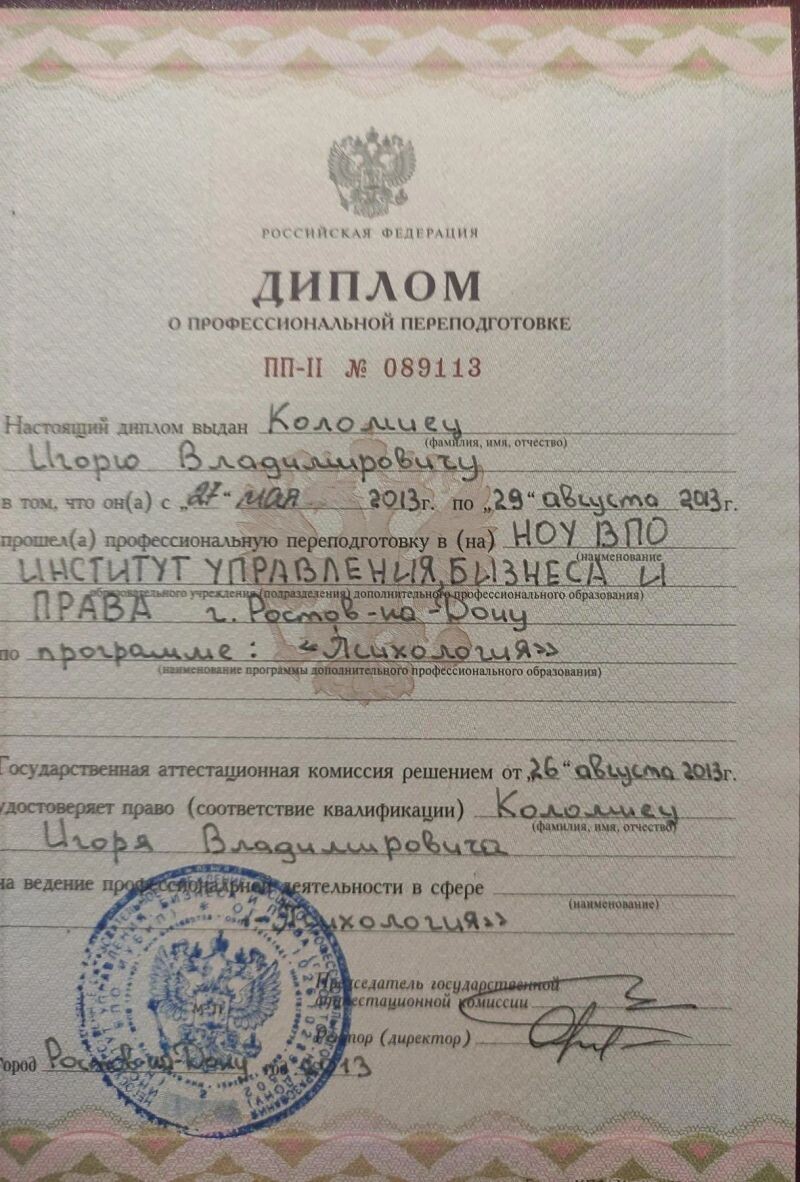 РОССИЙСКАЯ ФЕДЕРАЦИЯ
ДИПЛОМ
О ПРОФЕССИОНАЛЬНОЙ ПЕРЕПОДГОТОВКЕ
ПП-II № 089113
Настоящий диплом выдан Коломиец
(фамилия, имя, отчество)
Игорю Владимировичу
в том, что он(а) с „27“ мая 2013г. по „29“ августа 2013г.
прошел(а) профессиональную переподготовку в (на) НОУ ВПО
(наименование
ИНСТИТУТ УПРАВЛЕНИЯ, БИЗНЕСА И
образовательного учреждения (подразделения) дополнительного профессионального образования)
ПРАВА г. Ростов-на-Дону
по программе: «Психология»
(наименование программы дополнительного профессионального образования)
Государственная аттестационная комиссия решением от „26“ августа 2013г.
удостоверяет право (соответствие квалификации) Коломиец
(фамилия, имя, отчество)
Игоря Владимировича
на ведение профессиональной деятельности в сфере
(наименование)
«Психология»
Председатель государственной
аттестационной комиссии
М.П.
Ректор (директор)
город Ростов-на-Дону год 2013